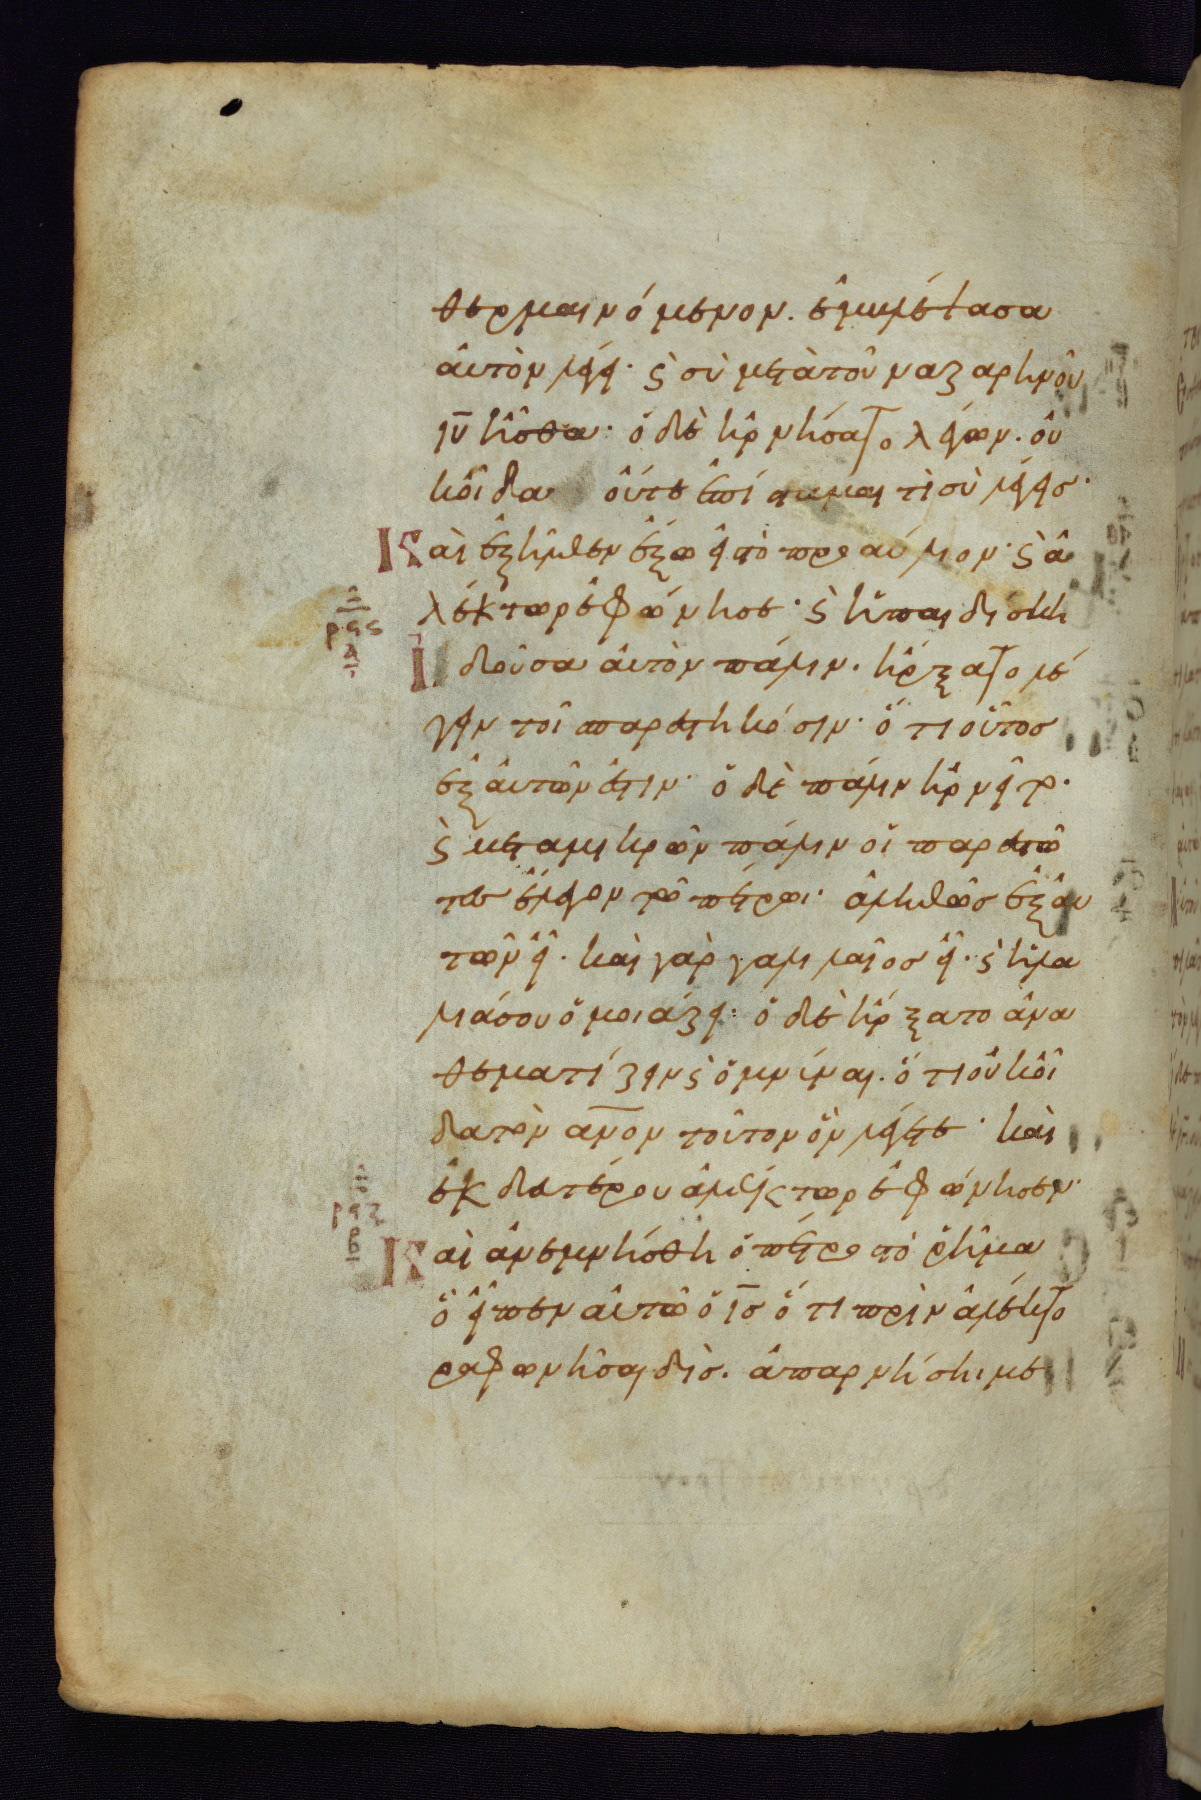 θερμαινόμενον. ἐμβλέψασα
αὐτὸν λέγει· ϛ̀ σὺ μετὰ τοῦ ναζαρηνοῦ
ιῦ ἦσθα· ὁ δὲ ἠρνήσατο λέγων. οὐ
κοἶδα οὔτε ἐπίσταμαι τί σὺ λέγεις·
Καὶ ἐξῆλθεν ἔξω εἰς τὸ προαύλιον· ϛ̀ ἀ
λέκτωρ ἐφώνησε· ϛ̀ ἡ παιδίσκη
ρϟϛ
α
Ἰδοῦσα αὐτὸν πάλιν. ἤρξατο λέ
γειν τοῖ παρεστηκόσιν· ὅτι οὗτος
ἐξ αὐτῶν ἐστιν· ὁ δὲ πάλιν ἠρνεῖτο·
ϛ̀ μετα μικρὸν πάλιν οἱ παρεστῶ
τες ἔλεγον τῶ πέτρωι· ἀληθῶς ἐξ αὐ
τῶν εἶ· καὶ γὰρ γαλιλαῖος εἶ· ϛ̀ ἡ λα
λιά σου ὁμοιάζει· ὁ δὲ ἤρξατο ἀνα
θεματίζειν ϛ̀ ὀμνύναι. ὅτι οὐκοἶ
δα τὸν ανον τοῦτον ὃν λέγετε· καὶ
ἐκ δευτέρου ἀλέκτωρ ἐφώνησεν·
ρϟζ
β
Καὶ ἀνεμνήσθη ὁ πέτρο τὸ ῥῆμα
ὃ εἶπεν αὐτῶ ὁ ις ὅτι πρὶν ἀλέκτο
ρα φωνῆσαι δίς. ἀπαρνήσηι με